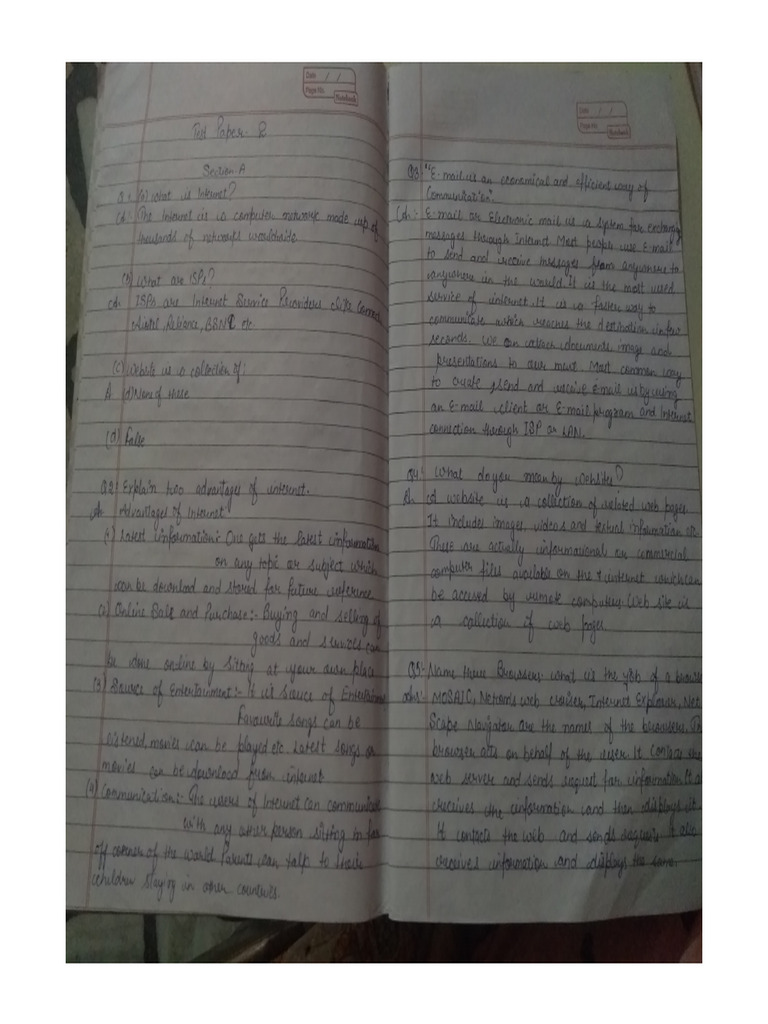 Date / /
Page No.
Notebook
Test Paper 2
Section A
Q.1 (a) What is Internet?
Ans:- The Internet is a computer network made up of
thousands of networks worldwide.
(b) What are ISPs?
Ans ISPs are Internet Service Providers like Connect,
Airtel, Reliance, BSNL etc
(c) Website is a collection of:
A (d) None of these
(d) False
Q2:- Explain two advantages of internet.
Ans Advantages of Internet
(1) Latest information:- One gets the latest information
on any topic or subject which
can be download and stored for future reference
(2) Online Sale and Purchase:- Buying and selling of
goods and services can
be done on-line by sitting at your own place
(3) Source of Entertainment:- It is Source of Entertainment
Favourite songs can be
listened, movies can be played etc. Latest songs or
movies can be download from internet
(4) Communication:- The users of Internet can communicate
with any other person sitting in far
off corner of the world Parents can talk to their
children staying in other countries.
Date / /
Page No.
Notebook
Q3:- "E-mail is an economical and efficient way of
Communication".
Ans:- E-mail or Electronic mail is a system for exchanging
messages through Internet Most people use E-mail
to send and receive messages from anywhere to
anywhere in the world It is the most used
service of internet. It is a faster way to
communicate which reaches the destination in few
seconds. We can attach documents image and
presentations to our Most common way
to create, send and receive E-mail is by using
an E-mail client or E-mail program and Internet
connection through ISP or LAN.
Q4:- What do you mean by website?
Ans A website is a collection of related web pages
It includes images videos and textual information
These are actually informational or commercial
computer files available on the internet which can
be accused by remote computers. Web site is
a collection of web pages.
Q5:- Name three Browsers. What is the job of a browser
Ans:- MOSAIC, Netcom's web Internet Explorer, Net
Scape Navigator are the names of the browsers. The
browser acts on behalf of the user. It contacts the
web server and sends request for information It a
receives the information and then displays it.
It contacts the web and sends It also
receives information and displays the same.